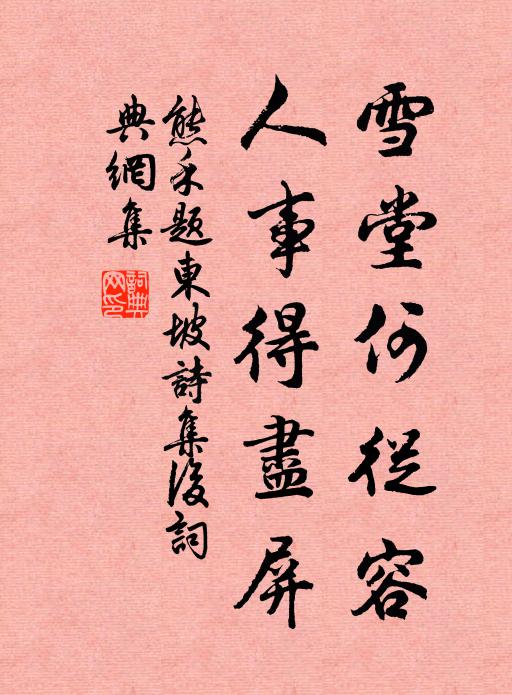 雪堂何從容
人事得盡屏
熊禾題東坡詩集後詞
典網集
詞典網印